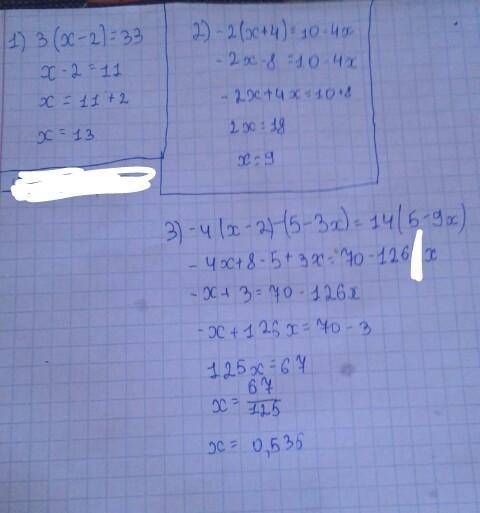 1) 3(x-2)=33
x-2=11
x=11+2
x=13
2) -2(x+4)=10-4x
-2x-8=10-4x
-2x+4x=10+8
2x=18
x=9
3) -4(x-2)-(5-3x)=14(5-9x)
-4x+8-5+3x=70-126x
-x+3=70-126x
-x+126x=70-3
125x=67
x=67/125
x=0,536